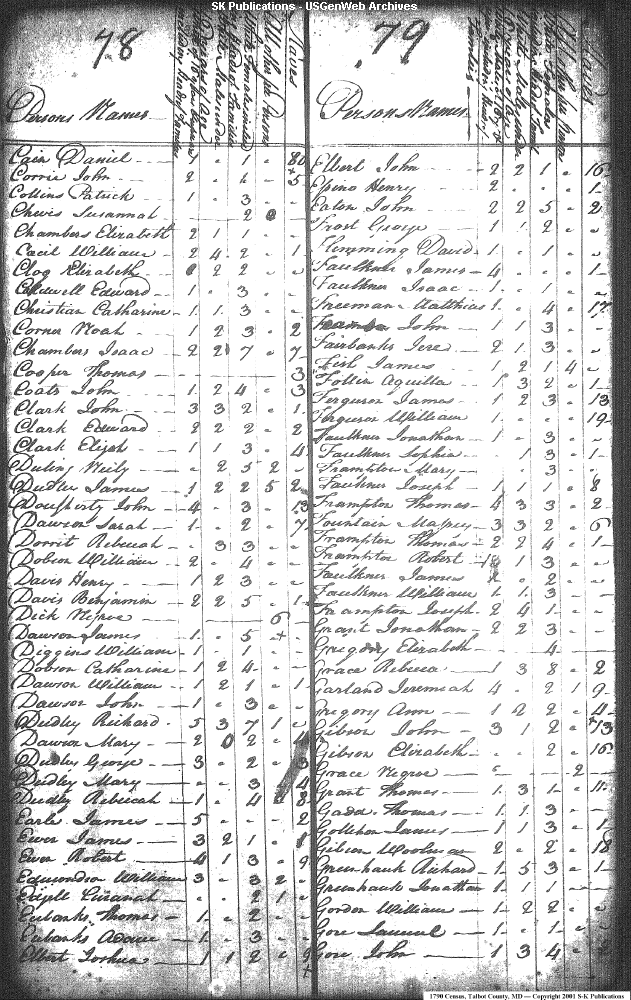 SK Publications - USGenWeb Archives
78
Persons Names
Slaves
Cain Daniel 1 " 1 " 80
Corrie John 2 " 1 " 5
Collins Patrick 1 " 3
Chevis Susannah 2 0
Chambers Elizabeth 2 1 1
Cecil William 2 4 2 " 1
Clog Elizabeth 0 2 2
Caldwell Edward 1 " 3
Christian Catharine 1 1 3
Corner Noah 1 2 3 " 2
Chambers Isaac 2 2 7 " 7
Cooper Thomas 3
Coats John 1 2 4 " 3
Clark John 3 3 2 " 1
Clark Edward 2 2 2 " 2
Clark Elijah 1 1 3 " 4
" 2 5 2
Dudley James 1 2 2 5 2
Dougherty John 4 " 3 " 13
Dawson Sarah 1 " 2 " 7
Dorrit Rebeccah " 3 3
Dobson William 2 " 4
Davis Henry 1 2 3
Davis Benjamin 2 2 5 " 1
Dick Negroe 6
Dawson James 1 " 5 +
Diggins William 1 " 1
Dobson Catharine 1 2 4
Dawson William 1 2 1 " 1
Dawson John 1 " 3
Dudley Richard 5 3 7 1
Dawson Mary 2 0 2 " 4
Dudley George 3 " 2 " 3
Dudley Mary " " 3 4
Dudley Rebeccah 1 " 4 8
Earle James 5 " " " 2
Ewer James 3 2 1 " 1
Ewer Robert 4 1 3 " 9
Edmondson William 3 " 3 2
" " 2 1
Eubanks Thomas 1 " 2
Eubanks Adam 1 " 3
Elbert Joshua 1 1 2 " 9
79
Persons Names
Slaves
Elbert John 2 2 1 " 16
Espino Henry 2 " " " 1
Eaton John 2 2 5 " 2
Frost George 1 1 2
Flemming David 1 " 1
Faulkner James 4 " " " 1
Faulkner Isaac 1 " 1
Freeman Matthias 1 " 4 " 17
John 1 " 3
Fairbanks Jere 2 1 3
Fish James 1 2 1 4
Follin Aquilla 1 3 2 " 1
Ferguson James 1 2 3 " 13
Ferguson William 1 " " " 19
Faulkner Jonathan 1 " 3
Faulkner Sophia " 1 3 " 1
Frampton Mary " " 3
Faulkner Joseph 1 1 1 " 8
Frampton Thomas 4 3 3 " 2
Fountain 3 3 2 " 6
Frampton Thomas 2 2 4 " 1
Frampton Robert 1 1 3
Faulkner James 2 " 2
Faulkner William 1 1 3
Frampton Joseph 2 4 1
Grant Jonathan 2 2 3
Gregory Elizabeth " " 4
Grace Rebecca 1 3 8 " 2
Garland Jeremiah 4 " 2 1 9
Gregory Ann 1 2 2 " 4
Gibson John 3 1 2 " 13
Gibson Elizabeth " " 2 " 16
Grace Negroe 2
Grant Thomas 1 3 1 " 11
Gadd Thomas 1 1 3
James 1 1 3 " 1
Gibson Woolman 2 " 2 " 18
Greenhawk Richard 1 5 3 " 1
Greenhawk Jonathan 1 1 1
Gordon William 1 2 2
Gore Samuel 1 " 1
Gore John 1 3 4 " 2
1790 Census, Talbot County, MD — Copyright 2001 S-K Publications